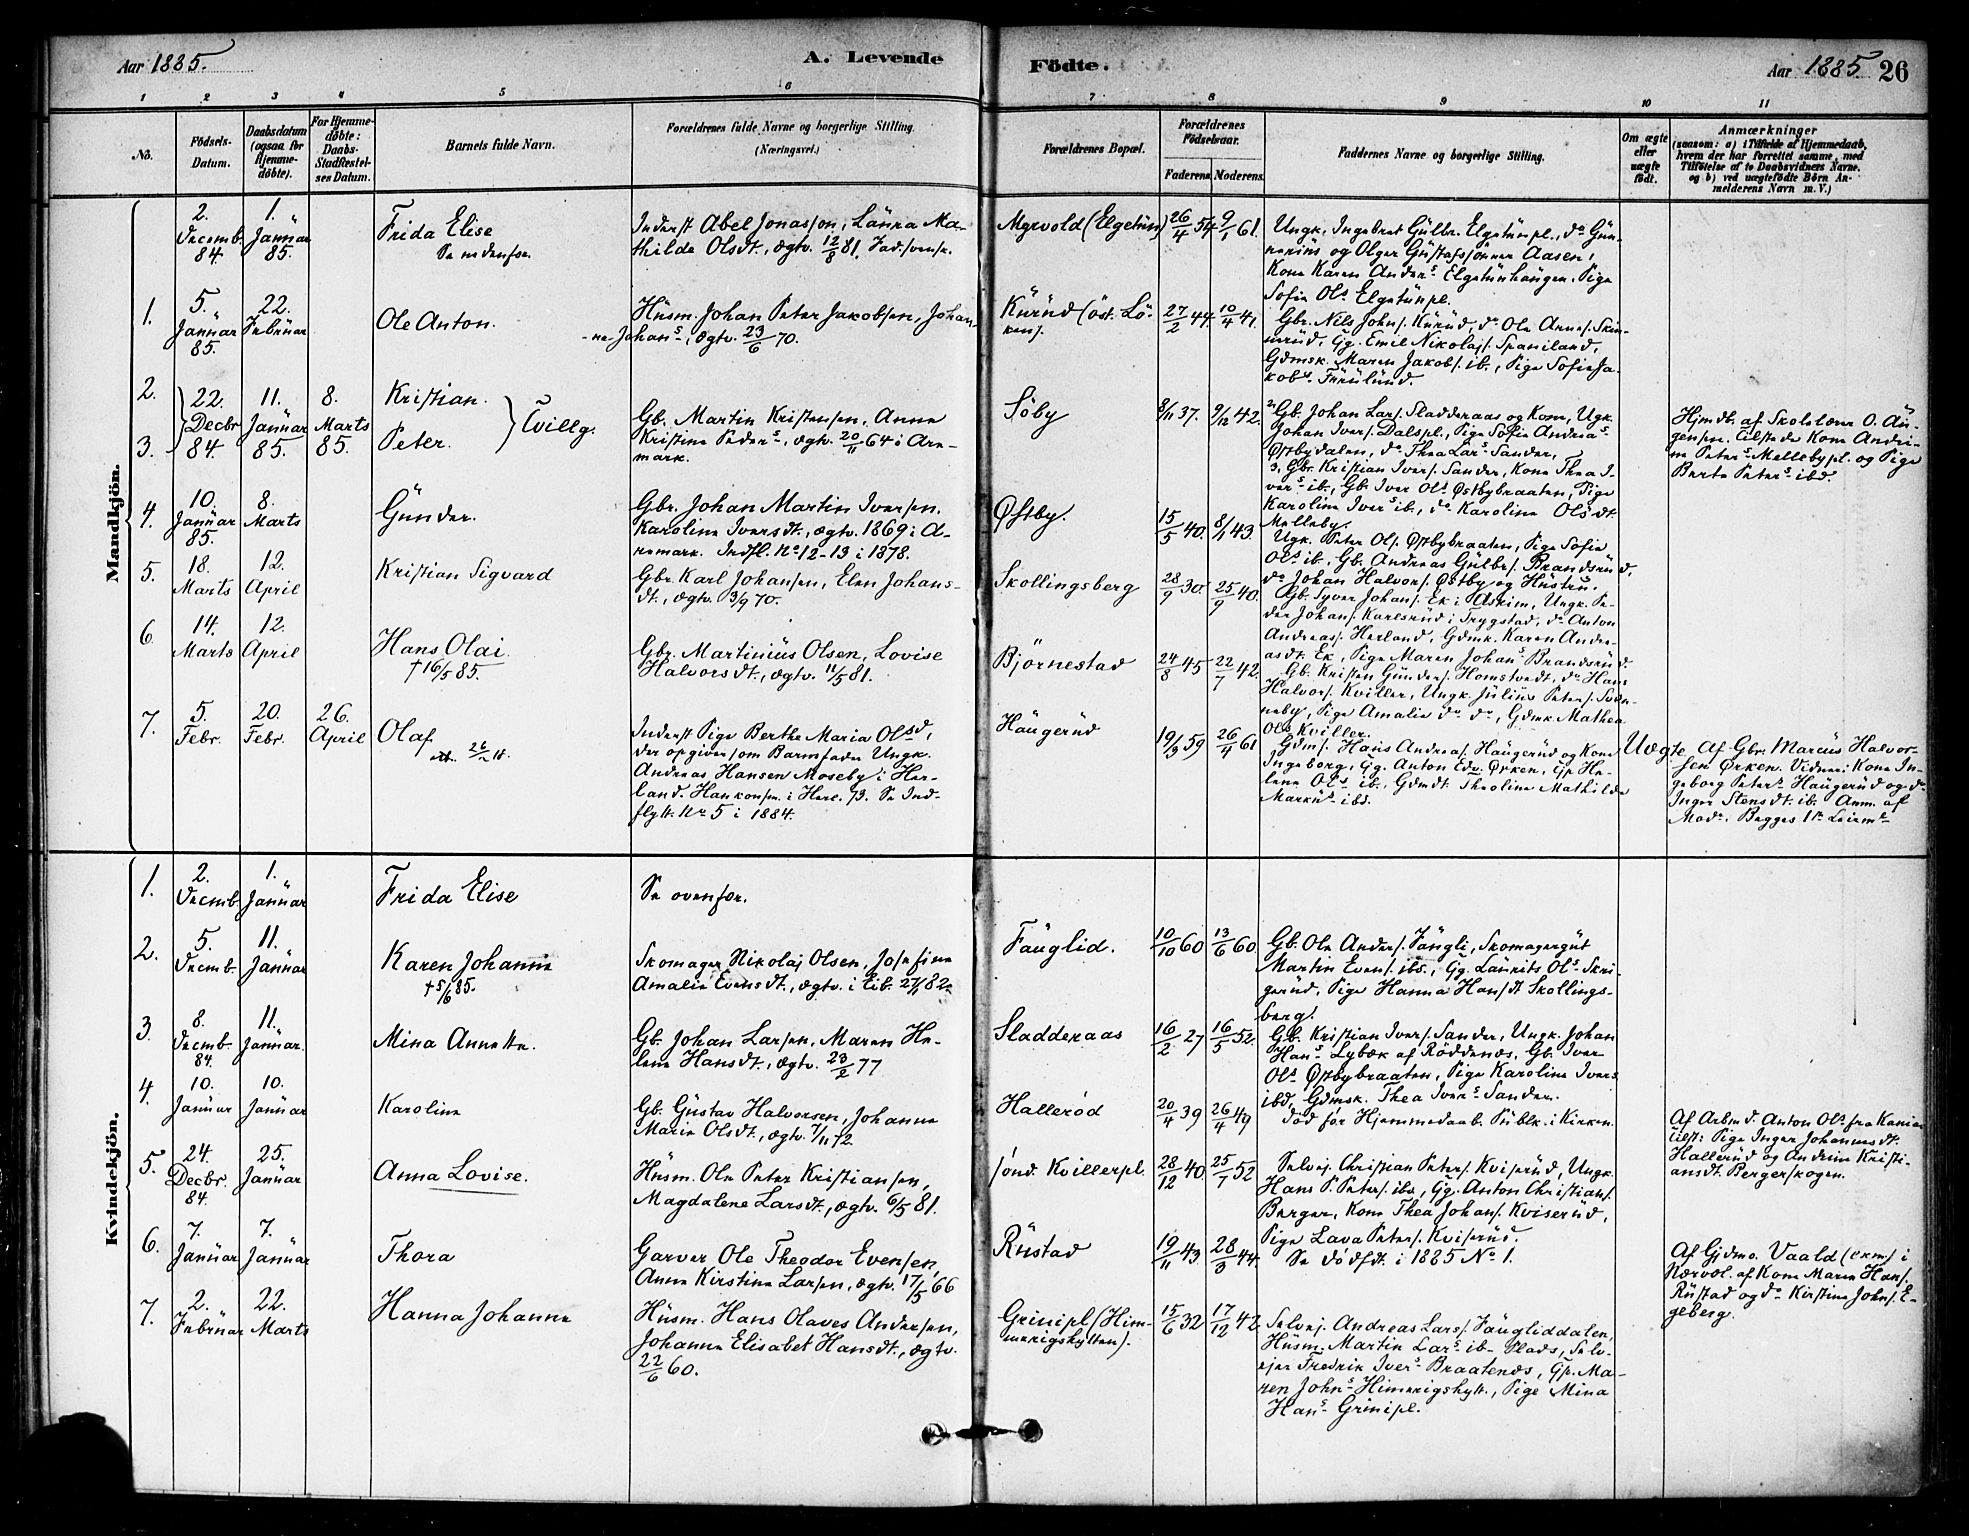 Aar 1885.
A. Levende
Födte.
Aar 1885
26
1 2 3 4 5 6 7 8 9 10 11
No.
Födsels-
Datum.
Daabsdatum
(ogsaa for
Hjemme-
döbte).
For Hjemme-
döbte:
Daabs-
Stadfæstel-
ses Datum.
Barnets fulde Navn.
Forældrenes fulde Navne og borgerlige Stilling.
(Næringsvei.)
Forældrenes Bopæl.
Forældrenes
Födselsaar.
Faderens. Moderens.
Faddernes Navne og borgerlige Stilling.
Om ægte
eller
uægte
födt.
Anmærkninger
(saasom: a) i Tilfælde af Hjemmedaab,
hvem der har forrettet samme, med
Tilföielse af to Daabsvidners Navne,
og b) ved uægtefödte Börn An-
melderens Navn m. V.)
Mandkjön.
2.
Decemb.
84.
1.
Januar
85.
Frida Elise
Se nedenfor.
Inderst Abel Jonassen, Laura Ma-
thilde Olsdt., ægtv. 12/8 81.
Myrvold (Elgetun)
26/4 54
9/1 61.
Ungk. Ingebret Gulbr. Elgetunpl., do Gun-
nerius og Olger Gustafssönner Aasen,
Kone Karen Anders. Elgetunhaugen, Pige
Sofie Ols. Elgetunpl.
1.
5.
Januar
85.
22.
Februar
Ole Anton.
Husm. Johan Peter Jakobsen, Johan-
ne Johans., ægtv. 23/6 70.
Kurud (öst. Lö-
ken).
27/2 44.
10/4 41.
Gbr. Nils Johns. Kurud, do Ole Arnes. Skin-
nerud, Gg. Emil Nikolajs. Spaniland,
Gdmsk. Maren Jakobs. ib., Pige Sofie Ja-
kobs. Furulund.
2.
3.
22.
Decbr
84.
11.
Januar
85.
8.
Marts
85.
Kristian.
Peter.
Tvillg.
Gb. Martin Kristensen, Anne
Kristine Peders., ægtv. 20/11 64 i Are-
mark.
Söby
8/11 37.
9/12 42.
2, Gb. Johan Lars. Sladderaas og Kone, Ugk.
Johan Ivers. Dalspl., Pige Sofie Andreas.
Østbydalen, do Thea Lars. Sander,
3, Gbr. Kristian Ivers. Sander, Kone Thea I-
vers. ib., Gb. Iver Ols. Østbybraaten, Pige
Karoline Ivers. ib., do Karoline Olsdt.
Melleby.
Hjmdb. af Skolelærer O. Au-
gensen. Tilstede Kone Andri-
ne Peters. Mellebypl. og Pige
Berte Peters. ibd.
4.
10.
Januar
85.
8.
Marts
Gunder.
Gbr. Johan Martin Iversen,
Karoline Iversdt., ægtv. 1869 i A-
remark. Indfl. No 12-13 i 1878.
Østby.
15/5 40.
8/1 43.
Ugk. Peter Ols. Østbybraaten, Pige Sofie
Ols. ib., Gb. Andreas Gulbrs. Brandsrud,
do Johan Halvors. Østby og Hustru.
5.
18.
Marts
12.
April
Kristian Sigvard
Gbr. Karl Johansen, Elen Johans-
dt., ægtv. 3/9 70.
Skollingsberg
28/9 30.
25/9 40.
Gb. Syver Johans. Ek i Askim, Ungk. Pe-
der Johans. Karlsrud i Trygstad, do Anton
Andreas. Herland, Gdmk. Karen Andre-
asdt. Ek, Pige Maren Johans. Brandsrud.
6
14.
Marts
12.
April
Hans Olai
† 16/5 85.
Gbr. Martinius Olsen, Lovise
Halvorsdt., ægtv. 11/5 81.
Björnestad
24/8 45
22/7 42.
Gb. Kristen Gunders. Homstvedt, do Hans
Halvors. Kviller, Ungk. Julius Peters.
Pige Amalie do do, Gdmk Mathea
Ols. Kviller.
7.
5.
Febr.
20.
Febr.
26.
April
Olaf
Inderst Pige Berthe Maria Olsd,
der opgiver som Barnefader Ungk.
Andreas Hansen Moseby i Her-
land. Han konfm. i Herl. 73. Se Ind-
flytt. No 5 i 1884.
Haugerud
19/9 59
26/4 61
Gdm. Hans Andreas. Haugerud og Kone
Ingeborg, Gg. Anton Edv. Ørken, Gp He-
lene Ols. ib., Gdmdt. Theoline Mathilde
Markus. ibd.
Uægte
Af Gbr. Marcus Halvor-
sen Ørken. Vidner: Kone In-
geborg Peters. Haugerud og do
Inger Stensdt. ib. Anm. af
Mode. Begges 1ste Leierm.
Kvindekjön.
1.
2.
Decmb.
1.
Januar
Frida Elise
Se ovenfor.
2.
5.
Decmb.
11.
Januar
Karen Johanne
† 5/6 85.
Skomager Nikolaj Olsen, Josefine
Amalie Evensdt., ægtv. i Eib. 27/1 82.
Fauglid.
10/10 60
13/6 60
Gb. Ole Anders. Faugli, Skomagergut
Martin Evens. ibd., Gg. Laurits Ols. Skri-
gerud, Pige Hanna Hansdt Skollings-
berg.
3.
8.
Decmb.
84.
11.
Januar.
Mina Annette.
Gb. Johan Larsen, Maren He-
lene Hansdt., ægtv. 23/2 77
Sladderaas
16/2 27
16/5 52.
Gb. Kristian Ivers. Sander, Ungk. Johan
Hans. Lybæk af Röddenæs, Gb. Iver
Ols. Østbybraaten, Pige Karoline Ivers.
ibd., Gdmsk. Thea Ivers. Sander.
4.
10.
Januar
10.
Januar
Karoline
Gb. Gustav Halvorsen, Johanne
Marie Olsdt., ægtv. 7/11 72.
Halleröd
20/4 39
26/4 49
död för Hjemmedaab. Publk. i Kirken.
Af Arbmd. Anton Ols. fra
tilst: Pige Inger Johannesdt.
Hallerud og Andrine Kristi-
ansdt. Bergerskogen.
5.
24.
Decbr.
84.
25.
Januar
Anna Lovise.
Husm. Ole Peter Kristiansen,
Magdalene Larsdt., ægtv. 6/5 81.
sönd. Kvillerpl.
28/12 40.
25/7 52
Selvej. Christian Peters. Kviserud, Ungk.
Hans P. Peters. ibd, Gg. Anton Christians.
Berger, Kone Thea Johans. Kviserud,
Pige Lava Peters. Kviserud.
6.
7.
Januar
7.
Januar
Thora
Garver Ole Theodor Evensen,
Anne Kirstine Larsen, ægtv. 17/5 66
Rustad
19/11 43
28/3 44.
Se Dödfdt. i 1885 No 1.
Af Gjdmo. Vaald (exm) i
Nærvæl. af Kone Maren Hans.
Rustad og do Kirstine Johns. E-
geberg.
7.
2.
Februar
22.
Marts
Hanna Johanne
Husm. Hans Olaves Andersen,
Johanne Elisabet Hansdt., ægtv.
22/6 60.
Grinipl (Him-
merigshytten).
15/6 32
17/12 42.
Selvej. Andreas Lars. Faugliddalen,
Husm. Martin Lars. ib. Plads, Selv-
ejer Fredrik Ivers. Braatenæs, Gp. Ma-
ren Johns. Himerigshytt., Pige Mina
Hans. Grinipl.